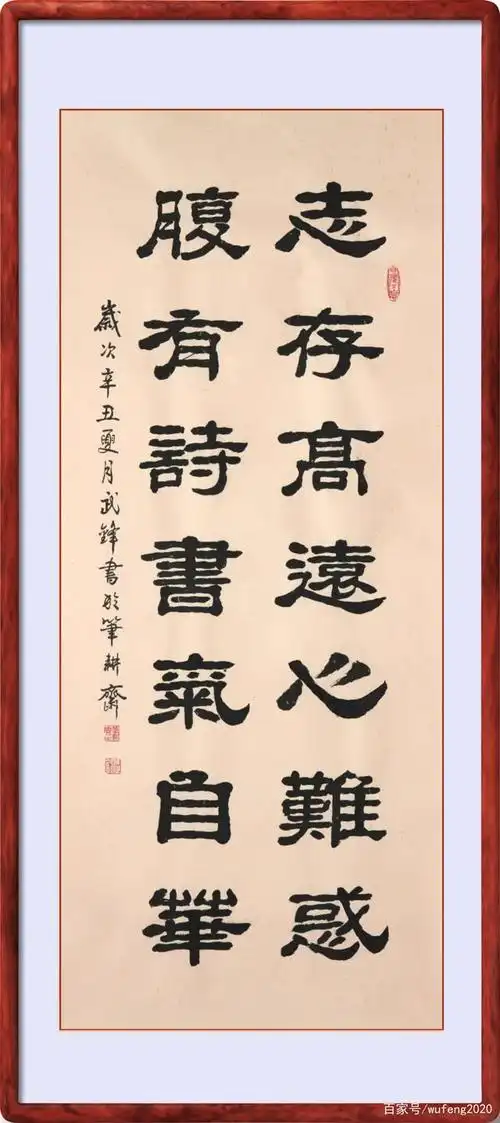 志存高遠心難惑
腹有詩書氣自華
歲次辛丑夏月武鋒書於筆耕齋
百家号/wufeng2020